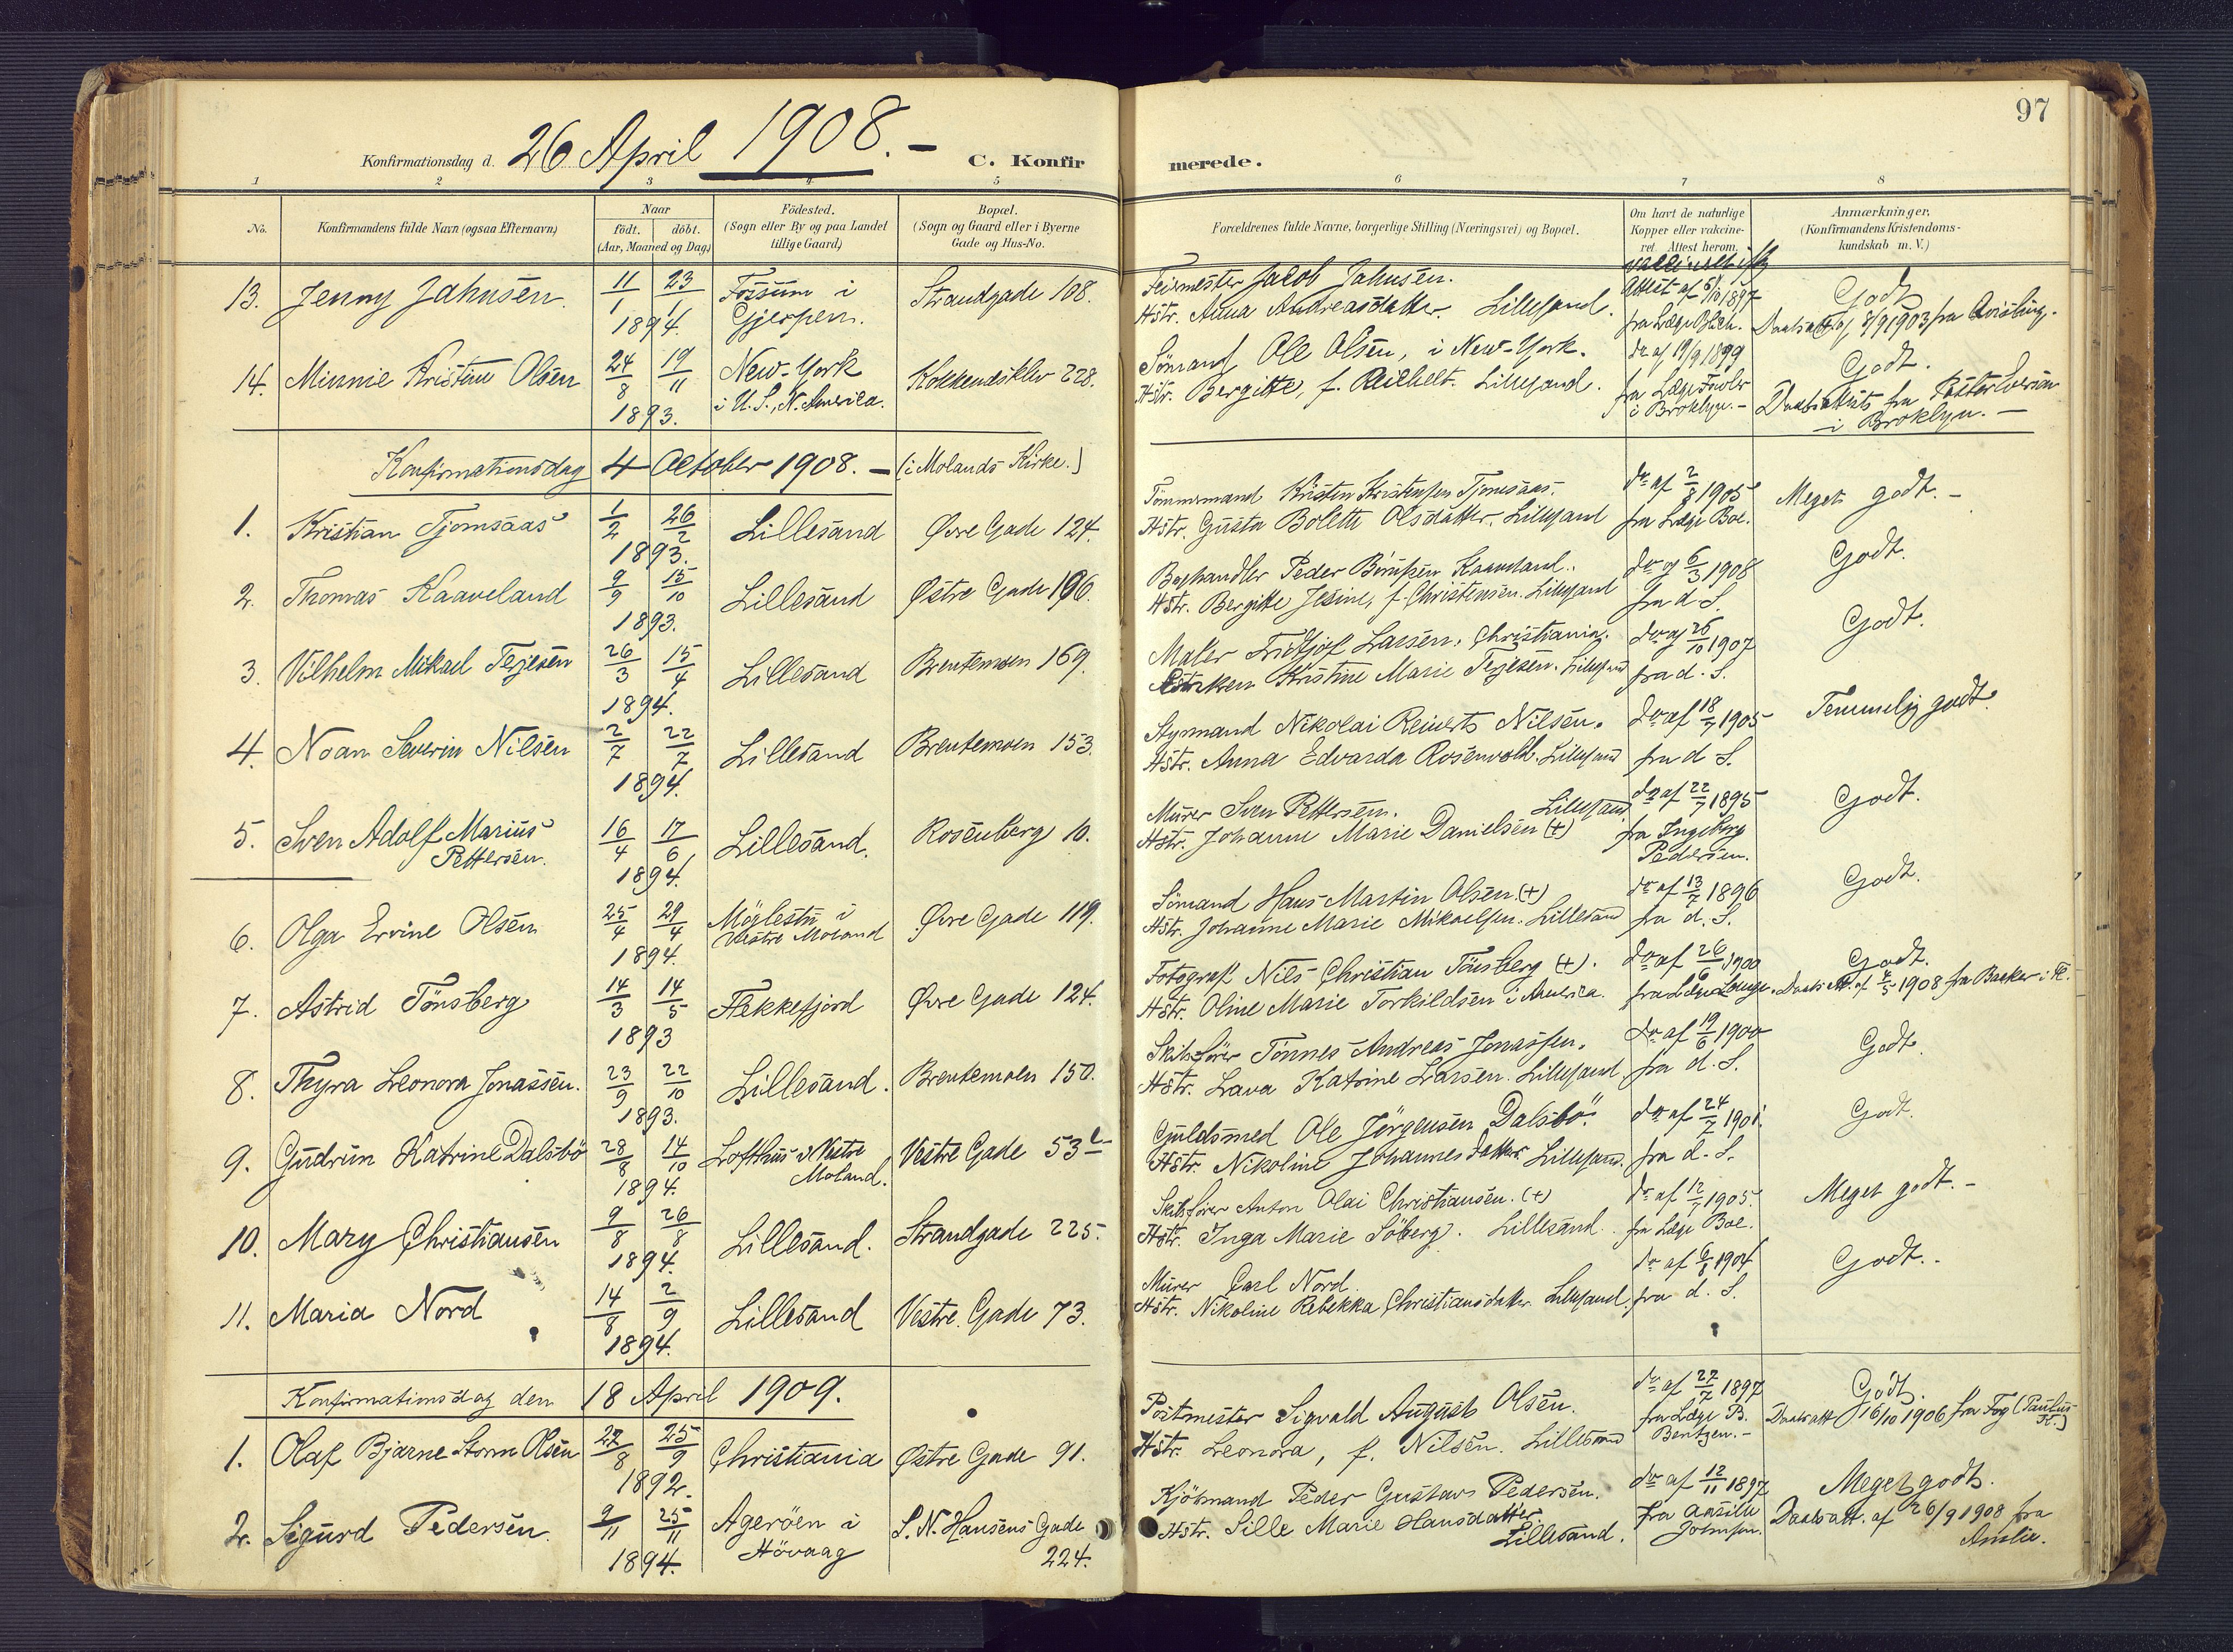 97
Konfirmationsdag d. 26 April 1908. — C. Konfirmerede.
1 2 3 4 5 6 7 8
No. Konfirmandens fulde Navn (ogsaa Efternavn) Naar födt. döbt. (Aar, Maaned og Dag) Födested. (Sogn eller By og paa Landet tillige Gaard) Bopæl. (Sogn og Gaard eller i Byerne Gade og Hus-No. Forældrenes fulde Navne, borgerlige Stilling (Næringsvei) og Bopæl. Om havt de naturlige Kopper eller vakcineret. Attest herom. Anmærkninger. (Konfirmandens Kristendomskundskab m. V.)
13. Jenny Jahnsen. 11/1 23/1 1894. Fossum i Gjerpen. Strandgade 108. Feiermester Jacob Jahnsen.
Hstr. Anna Andreasdatter. Lillesand. Attest af 5/10 1897 fra Læge Blich. Godt
Daabsatt. af 8/9 1903 fra
14. Minnie Kristine Olsen 24/8 19/11 1893. New-York i U.S., N. America. Kokkenesklev 228. Sömand Ole Olsen, i New-York.
Hstr. Bergitte, f. Reichelt. Lillesand. do af 19/9 1899 fra Læge Fowler i Broklyn. — Godt.
Daabsattest fra Pastor Everson i Broklyn. —
Konfirmationsdag 4 October 1908. — (i Molands Kirke.)
1. Kristian Tjomsaas 1/2 26/2 1893. Lillesand Øvre Gade 124. Tömmermand Kristen Kristensen Tjomsaas.
Hstr. Gusta Bolette Olsdatter. Lillesand do af 2/8 1905 fra Læge Boe. Meget godt. —
2. Thomas Kaaveland 9/9 15/10 1893. Lillesand Østre Gade 196. Boghandler Peder Kaaveland.
Hstr. Bergitte Jesine, f. Christensen. Lillesand do af 6/3 1908 fra d. S. Godt.
3. Vilhelm Mikael Terjesen 26/3 15/4 1894. Lillesand Brentemoen 169. Maler Fridtjof Larsen. Christiania.
Kristine Marie Terjesen. Lillesand do af 26/10 1907 fra d. S. Godt.
4. Noan Severin Nilsen 2/7 22/7 1894. Lillesand Brentemoen 153. Styrmand Nikolai Reinerts Nilsen.
Hstr. Anna Edvarda Rosenvold. Lillesand do af 18/7 1905 fra d. S. Temmelig godt.
5. Sven Adolf Marius Pettersen. 16/4 17/6 1894. Lillesand. Rosenberg 10. Murer Sven Pettersen. Lillesand.
Hstr. Johanne Marie Danielsen (+) do af 22/7 1895 fra Ingeborg Pedersen. Godt.
6. Olga Ervine Olsen 25/4 29/4 1894. Möglestu i Vestre Moland Øvre Gade 119. Sömand Hans Martin Olsen (+)
Hstr. Johanne Marie Mikaelsen. Lillesand do af 13/7 1896 fra d. S. Godt.
7. Astrid Tönsberg 14/3 14/5 1893 Flekkefjord Øvre Gade 124. Fotograf Nils Christian Tönsberg (+).
Hstr. Oline Marie Torkildsen i America. do af 26/6 1900 fra Læge Lange. Godt.
Daabs Att. af 4/5 1908 fra Barker i Fl.
8. Thyra Leonora Jonassen. 23/9 22/10 1893. Lillesand. Brentemoen 150. Skibsförer Tönnes Andreas Jonassen.
Hstr. Lava Katrine Larsen. Lillesand do af 19/6 1900 fra d. S. Godt.
9. Gudrun Katrine Dalsbö 28/8 14/10 1894. Lofthus i Vestre Moland. Vestre Gade 53 b Guldsmed Ole Jörgensen Dalsbö.
Hstr. Nikoline Johannesdatter Lillesand. do af 24/7 1901. fra d. S. Godt.
10. Mary Christiansen 9/8 26/8 1894. Lillesand. Strandgade 225. Skibsförer Anton Olai Christiansen. (+)
Hstr. Inga Marie Söberg. Lillesand. do af 12/7 1905. fra Læge Boe. Meget godt. —
11. Maria Nord 14/8 2/9 1894. Lillesand Vestre Gade 73. Murer Carl Nord.
Hstr. Nikoline Rebekka Christiansdatter Lillesand. do af 6/8 1904 fra d. S. Godt.
Konfirmationsdag den 18 April 1909.
1. Olaf Bjarne Storm Olsen 22/8 25/9 1892. Christiania Østre Gade 91. Postmester Sigvald August Olsen.
Hstr. Leonora, f. Nilsen. Lillesand do af 22/7 1897 fra Læge B. Bentzen. — Godt.
Daabsatt 16/10 1906 fra Fog (Paulus K.)
2. Sigurd Pedersen. 9/11 25/11 1894. Ageröen i Hövaag S. N. Hansens Gade 224. Kjöbmand Peder Gustav Pedersen.
Hstr. Sille Marie Hansdatter. Lillesand. do af 12/11 1897 fra Johnsen. Meget godt.
Daabsatt. af 26/9 1908 fra